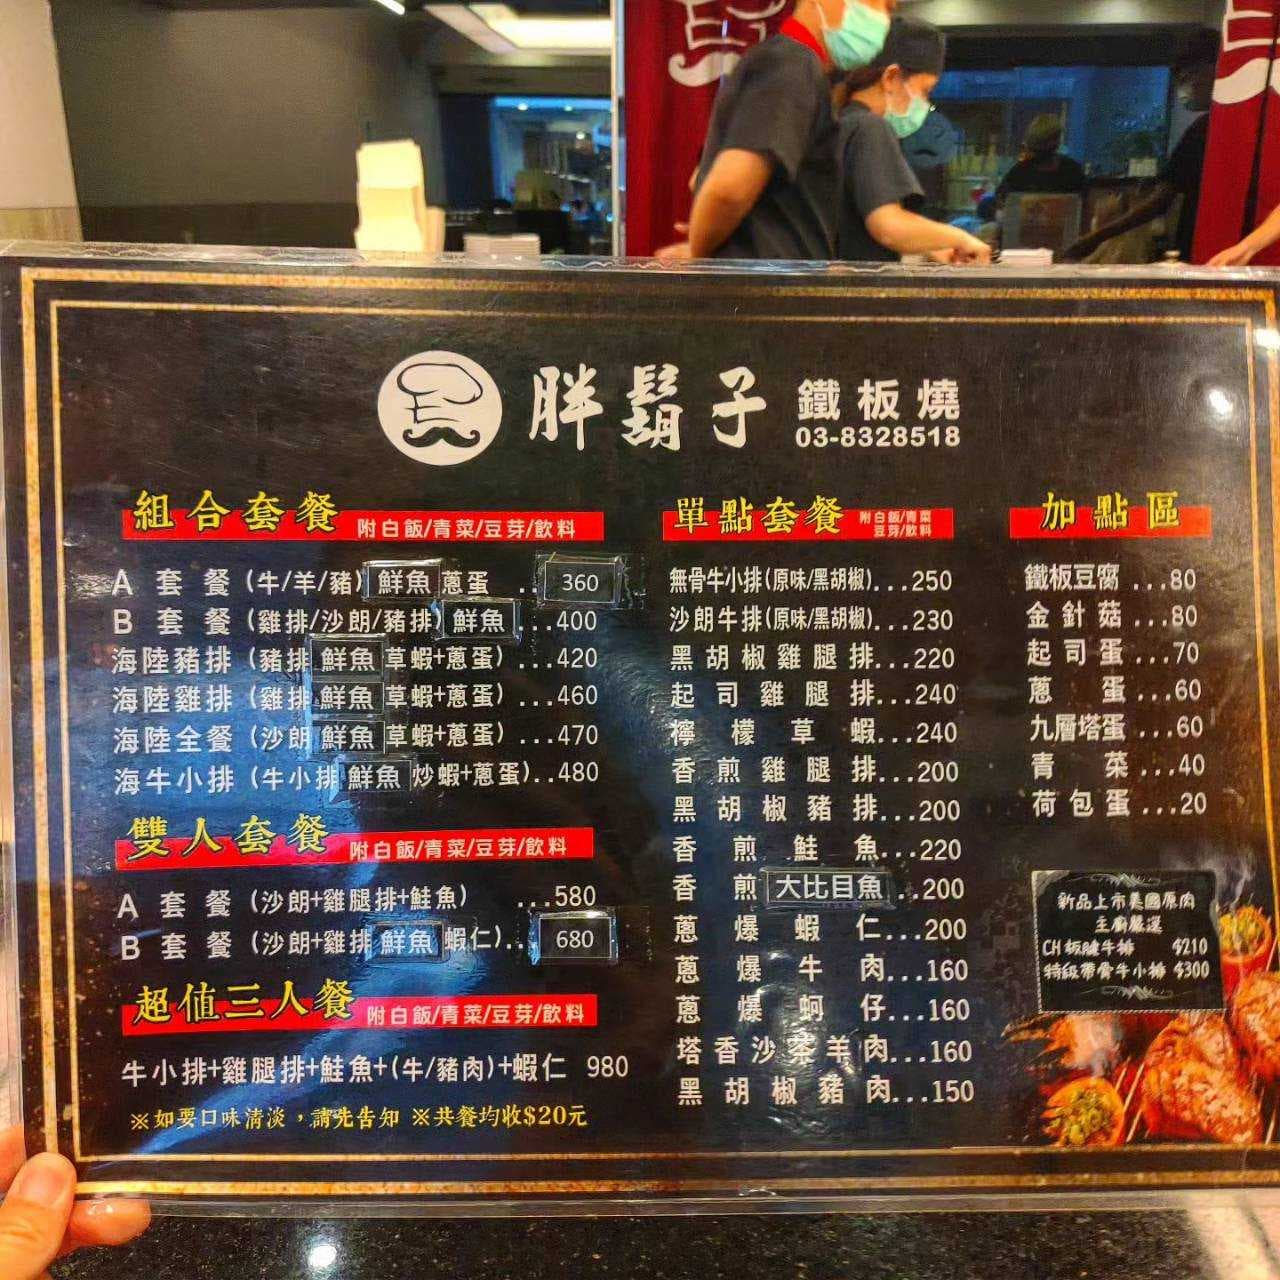 胖鬍子 鐵板燒
03-8328518
組合套餐 附白飯/青菜/豆芽/飲料
A 套餐 (牛/羊/豬) 鮮魚 蔥蛋 ..360
B 套餐 (雞排/沙朗/豬排) 鮮魚 ...400
海陸豬排 (豬排 鮮魚 草蝦+蔥蛋) ...420
海陸雞排 (雞排 鮮魚 草蝦+蔥蛋) ...460
海陸全餐 (沙朗 鮮魚 草蝦+蔥蛋) ...470
海牛小排 (牛小排 鮮魚 炒蝦+蔥蛋)..480
雙人套餐 附白飯/青菜/豆芽/飲料
A 套餐 (沙朗+雞腿排+鮭魚) ...580
B 套餐 (沙朗+雞排 鮮魚 蝦仁).. 680
超值三人餐 附白飯/青菜/豆芽/飲料
牛小排+雞腿排+鮭魚+(牛/豬肉)+蝦仁 980
※如要口味清淡，請先告知 ※共餐均收$20元
單點套餐 附白飯/青菜
豆芽/飲料
無骨牛小排(原味/黑胡椒)...250
沙朗牛排(原味/黑胡椒)...230
黑胡椒雞腿排...220
起司雞腿排...240
檸檬草蝦...240
香煎雞腿排...200
黑胡椒豬排...200
香煎鮭魚...220
香煎 大比目魚 ..200
蔥爆蝦仁...200
蔥爆牛肉...160
蔥爆蚵仔...160
塔香沙茶羊肉...160
黑胡椒豬肉...150
加點區
鐵板豆腐 ...80
金針菇 ...80
起司蛋 ...70
蔥蛋 ...60
九層塔蛋 ...60
青菜 ...40
荷包蛋 ...20
新品上市美國原肉
主廚嚴選
CH 板腱牛排 $210
特級帶骨牛小排 $300